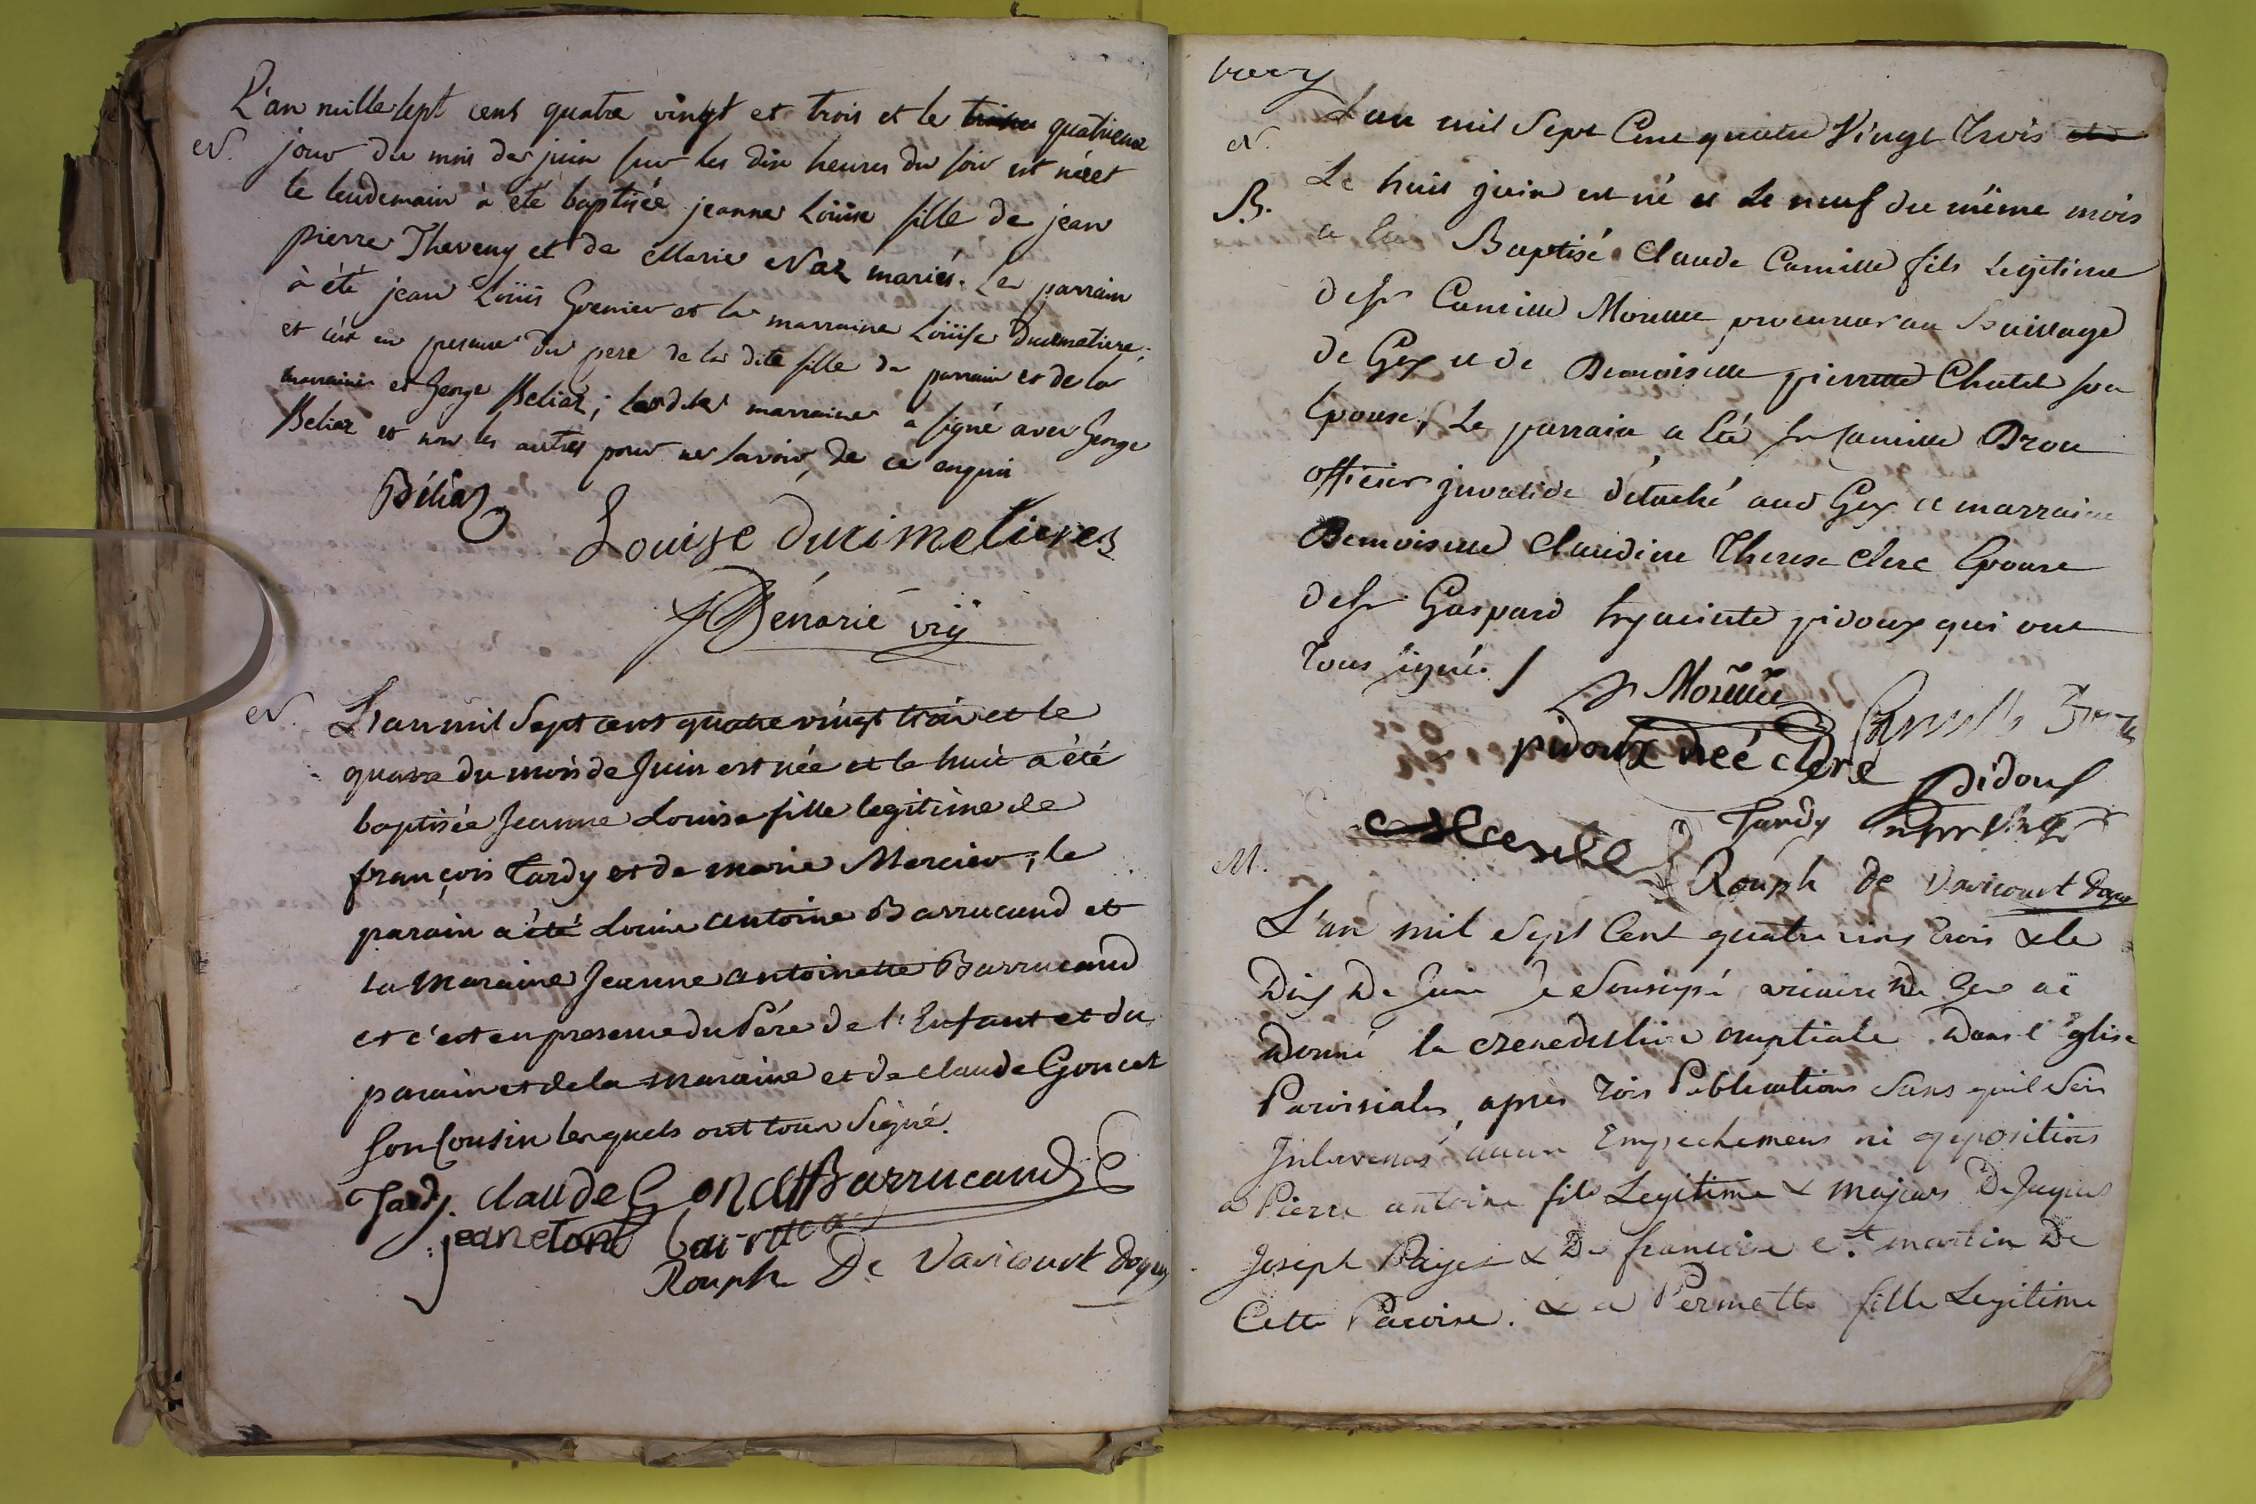 L'an mille sept cens quatre vingt et trois et le quatrieme
N. jour du mois de juin sur les dix heures du soir est née et
le lendemain à été baptisée jeanne Loüise fille de jean
pierre Theveny et de Marie Naz mariés. Le parrain
à été jean Loüis Grenier et la marraine Loüise Ducimetiere;
et c'est en presence du pere de la dite fille du parrain et de la
marraine et George Béliaz; laditte marraine a signé avec George
Beliaz et non les autres pour ne savoir, de ce enquis
Béliaz
Louise ducimetieres
Bénarié vic̈
N. L'an mil Sept cent quatre vingt trois et le
quatre du mois de Juin est née et le huit a été
baptisée Jeanne Louise fille legitime de
françois Tardy et de marie Mercier; le
parain a été Louis antoine Barrucand et
La Maraine Jeanne antoinette Barrucand
et c'est en presence du Pére de l'Enfant et du
parain et de la maraine et de claude Goncet
son Cousin lesquels ont tous Signé.
Tardy. claude Goncet Barrucand
jeanetoine
Rouph De Varicourt Doyen
L'an mil Sept Cent quatre Vingt Trois
N. Le huit juin est né et Le neuf du même mois
B. a été Baptisé Claude Camille fils Legitime
de Sr Camille procureur au Bailliage
de Gex et de Demoiselle pierrette Chatel son
Epouse, Le parrain a été Sr Camille Drou
officier invalide détaché aud Gex et marraine
Demoiselle Claudine Therese Clerc Epouse
de Sr Gaspard hyacinte pidoux qui ont
Tous signé. /
pidoux neé clerc
Pidoux
Tardy
Rouph de Varicourt Doyen
M.
L'an mil Sept Cent quatre vins trois & le
Dix De Juin Je Sousigné vicaire De Gex ai
Donné la Benediction nuptiale Dans l'Eglise
Paroisiale, apres trois Publications Sans quil Soit
Intervenus aucun Empechemens ni oppositions
a Pierre antoine fils Legitime & majeur De Jaques
Joseph & De francoise St martin De
Cette Paroise. & a Pernette fille Legitime